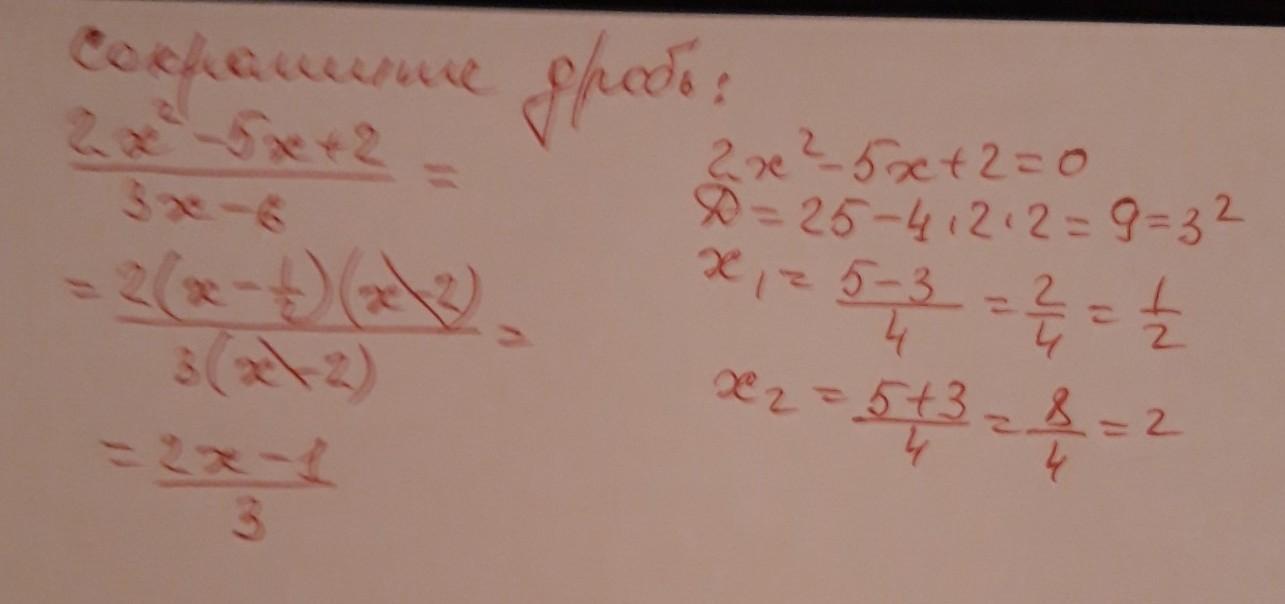 сократите дробь:
2x² - 5x + 2 / 3x - 6 =
= 2(x - 1/2)(x - 2) / 3(x - 2) =
= 2x - 1 / 3
2x² - 5x + 2 = 0
D = 25 - 4 · 2 · 2 = 9 = 3²
x₁ = 5 - 3 / 4 = 2/4 = 1/2
x₂ = 5 + 3 / 4 = 8/4 = 2